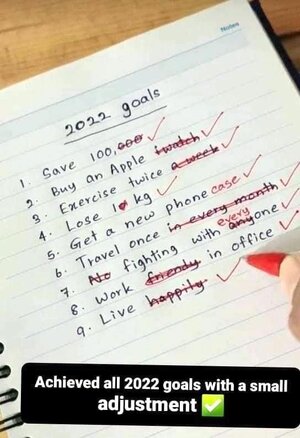 Notes
2022 goals
1. Save 100,000
2. Buy an Apple iwatch
3. Exercise twice a week
4. Lose 10 kg
5. Get a new phone case
6. Travel once in every month
7. No fighting with anyone every
8. Work friendy in office
9. Live happily
Achieved all 2022 goals with a small
adjustment ✅